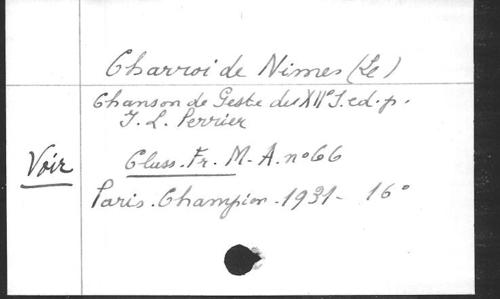 Charroi de Nimes (Le)
Chanson de Geste du XIIº S. ed. p.
J. L. Perrier
Voir Class. Fr. M. A. nº 66
Paris. Champion. 1931 - 16º